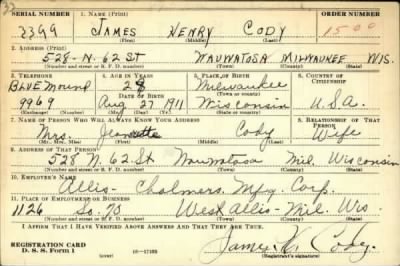 SERIAL NUMBER 1. NAME (Print) ORDER NUMBER
2399 JAMES HENRY CODY 1500
(First) (Middle) (Last)
2. ADDRESS (Print)
528-N. 62 St WAUWATOSA MILWAUKEE WIS.
(Number and street or R. F. D. number) (Town) (County) (State)
3. TELEPHONE 4. AGE IN YEARS 5. PLACE OF BIRTH 6. COUNTRY OF CITIZENSHIP
BLUE Mound 28 Milwaukee
9969 Aug 27 1911 Wisconsin U.S.A.
7. NAME OF PERSON WHO WILL ALWAYS KNOW YOUR ADDRESS 8. RELATIONSHIP OF THAT PERSON
Mrs. Jeannette Cody Wife
(Mr., Mrs., Miss) (First) (Middle) (Last)
9. ADDRESS OF THAT PERSON
528 N. 62 St Wauwatosa Mil. Wisconsin
(Number and street or R. F. D. number) (Town) (County) (State)
10. EMPLOYER'S NAME
Allis-Chalmers Mfg. Corp.
11. PLACE OF EMPLOYMENT OR BUSINESS
1126 So. 70 West Allis-Mil. Wis.
(Number and street or R. F. D. number) (Town) (County) (State)
I AFFIRM THAT I HAVE VERIFIED ABOVE ANSWERS AND THAT THEY ARE TRUE.
REGISTRATION CARD
D. S. S. Form 1 16-17105 James H. Cody
(Registrant's signature)